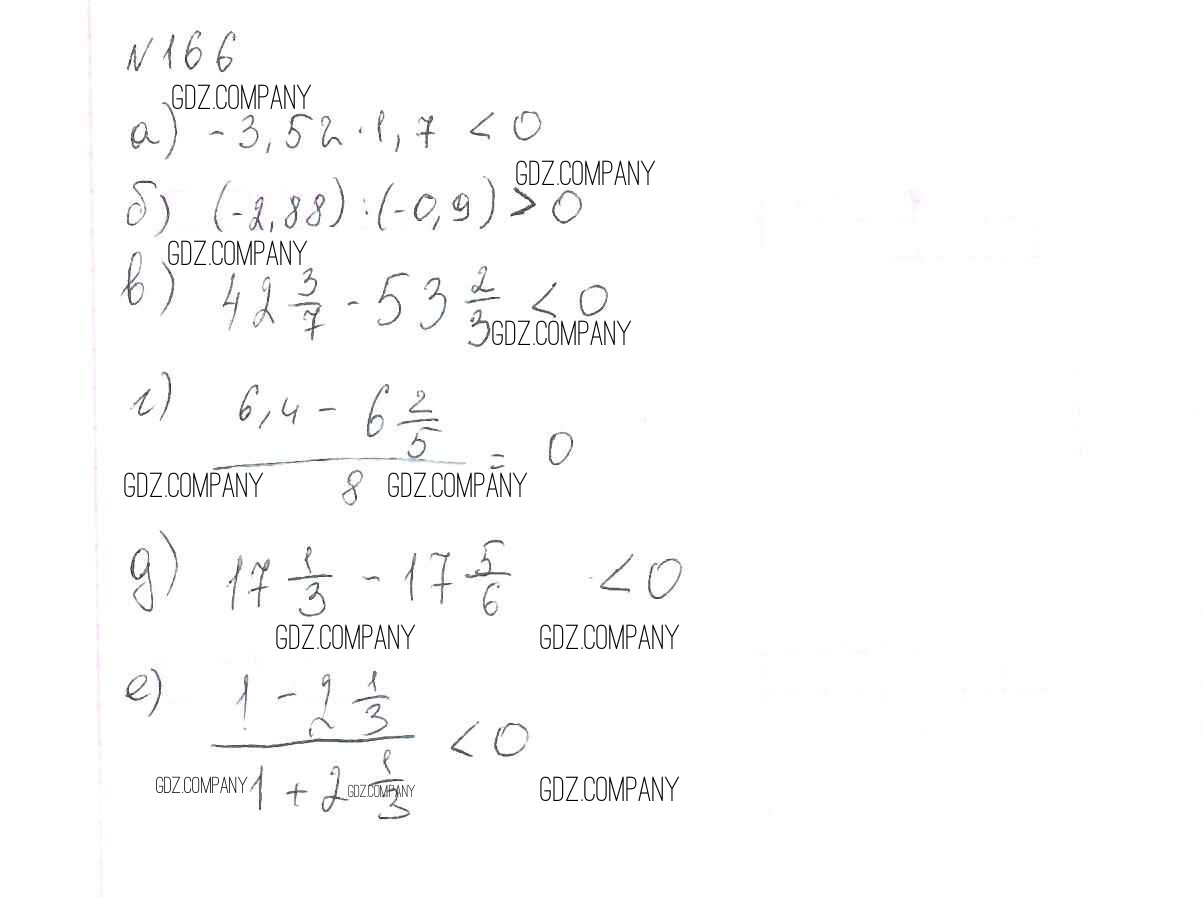 N 166
GDZ.COMPANY
а) -3,52 · 1,7 < 0
GDZ.COMPANY
б) (-2,88) : (-0,9) > 0
GDZ.COMPANY
в) 42 3/7 - 53 2/3 < 0
GDZ.COMPANY
г) (6,4 - 6 2/5) / 8 = 0
GDZ.COMPANY GDZ.COMPANY
д) 17 1/3 - 17 5/6 < 0
GDZ.COMPANY GDZ.COMPANY
е) (1 - 2 1/3) / (1 + 2 1/3) < 0
GDZ.COMPANY GDZ.COMPANY GDZ.COMPANY